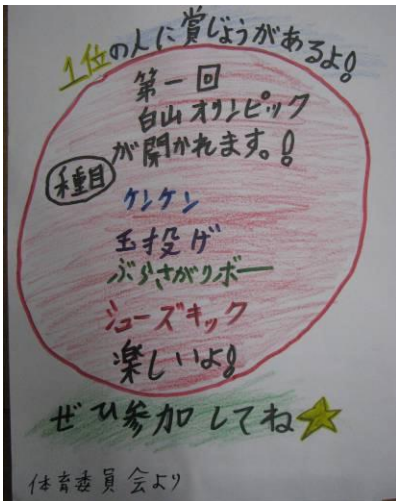 1位の人に賞じょうがあるよ!
第一回
白山オリンピック
が開かれます。!
種目
ケンケン
玉投げ
ぶらさがりボー
シューズキック
楽しいよ!
ぜひ参加してね
体育委員会より